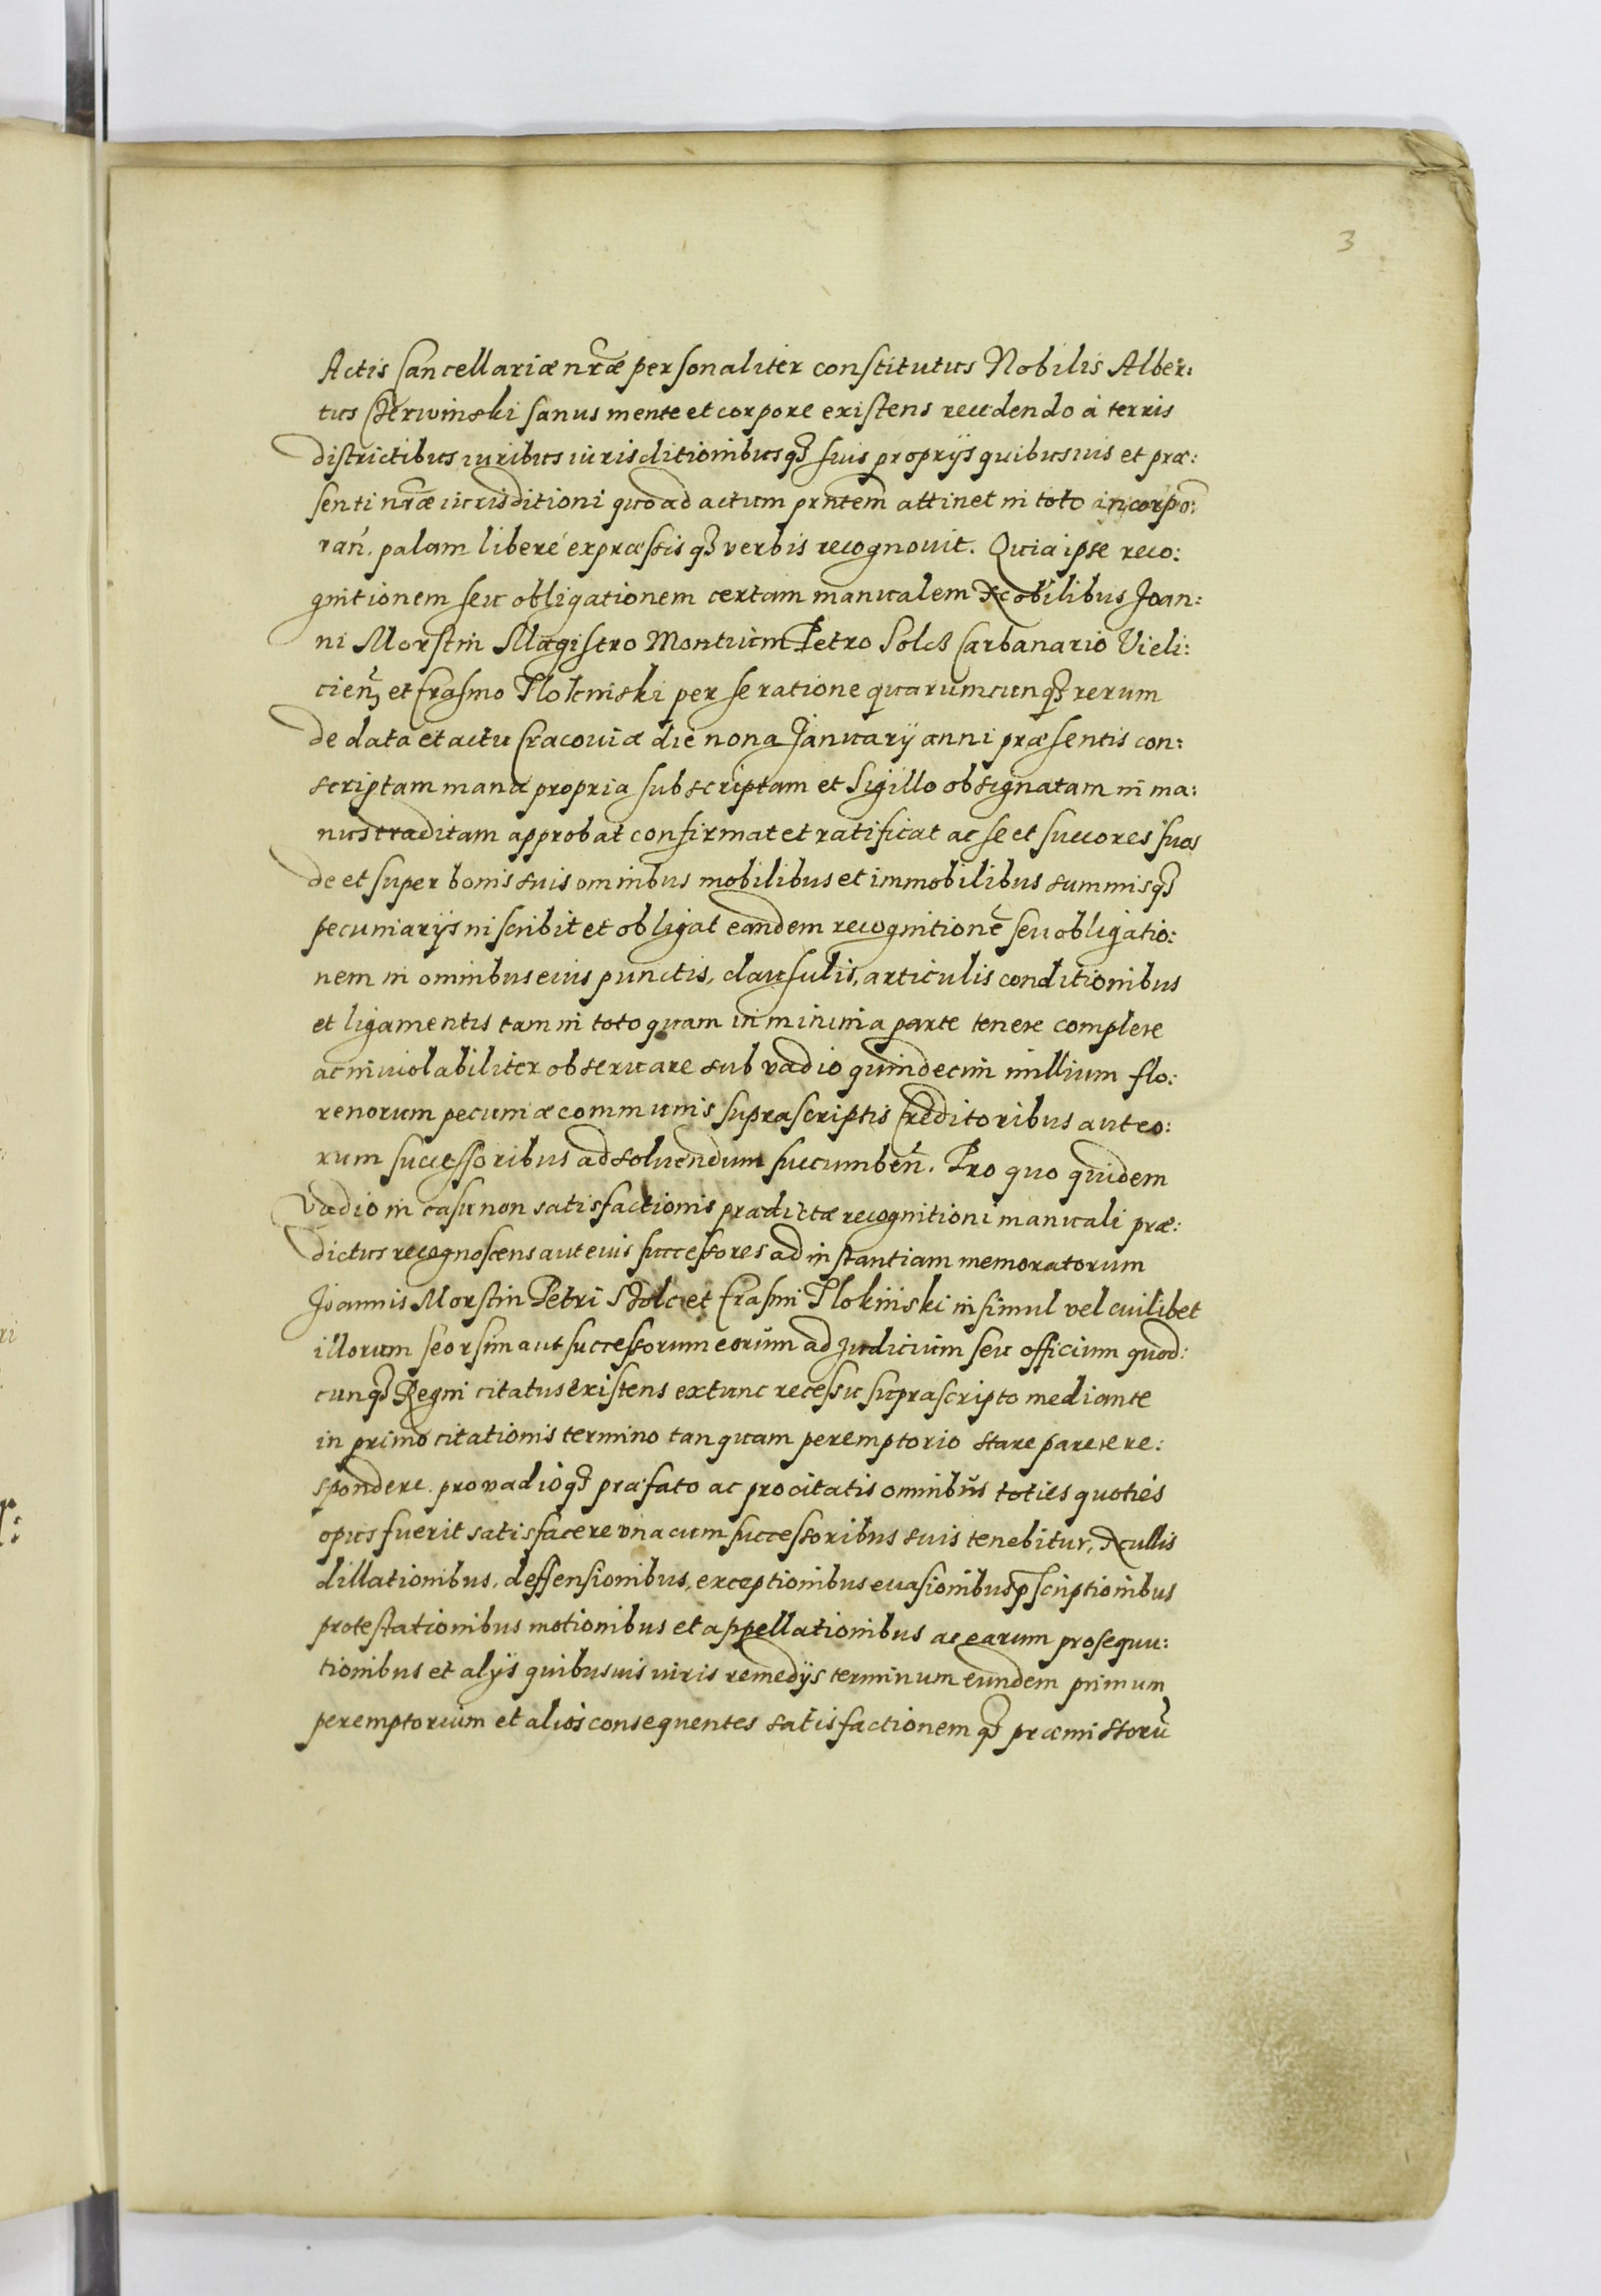 3
Actis Cancellariæ nr̃æ personaliter constitutus Nobilis Alber:
tus Czerwinski sanus mente et corpore existens recedendo à terris
districtibus iuribus iurisditionibusq3 suis proprijs quibusuis et præ:
senti nr̃æ iurisditioni quoad actum prñtem attinet in toto incorpo:
rañ. palam liberé expræssisq3 verbis recognouit. Quia ipse reco:
gnitionem seu obligationem certam manualem Nobilibus Joan:
ni Morstin Magistro Montium Petro Solcz Carbanario Vieli:
cień et Erasmo Tlokinski per se ratione quarumcunq3 rerum
de data et actu Cracouiæ die nona Januarij anni præsentis con:
scriptam manu propria subscriptam et Sigillo obsignatam in ma:
nus traditam approbat confirmat et ratificat ac se et succores suos
de et super bonis suis omnibus mobilibus et immobilibus summisq3
pecuniarijs inscribit et obligat eandem recognitionẽ seu obligatio:
nem in omnibus eius punctis, clausulis, articulis conditionibus
et ligamentis tam in toto quam in minima parte tenere complere
ac inuiolabiliter obseruare sub vadio quindecim millium flo:
renorum pecuniæ communis suprascriptis Creditoribus aut eo:
rum successoribus ad soluendum succumbeñ. Pro quo quidem
vadio in casu non satisfactionis prædictæ recognitioni manuali præ:
dictus recognoscens aut eius successores ad instantiam memoratorum
Joannis Morstin Petri Szolc et Erasmi Tlokinski insimul vel cuilibet
illorum seorsim aut successorum eorum ad Judicium seu officium quod:
cunq3 Regni citatus existens extunc recessu suprascripto mediante
in primo citationis termino tanquam peremptorio stare parere re:
spondere. pro vadioq3 præfato ac pro citatis omnibus toties quoties
opus fuerit satisfacere vna cum successoribus suis tenebitur, Nullis
dillationibus, deffensionibus, exceptionibus euasionibus pscriptionibus
protestationibus motionibus et appellationibus ac earum prosequu:
tionibus et alijs quibusuis iuris remedijs terminum eundem primum
peremptorium et alios consequentes satisfactionemq3 præmissorũ